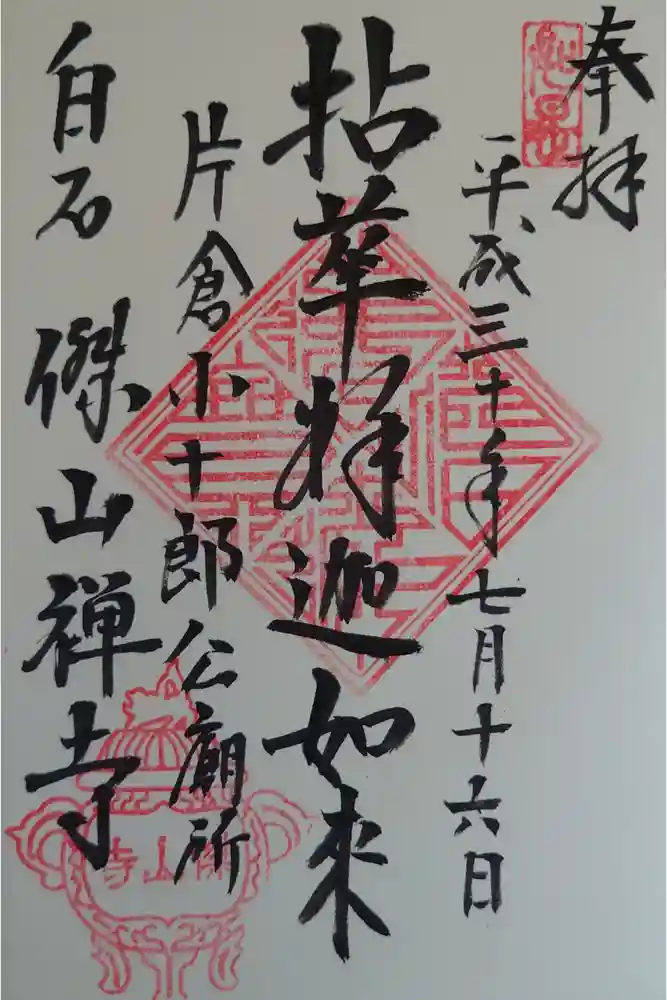 奉拝
平成三十年七月十六日
拈華釋迦如來
片倉小十郎公廟所
白石 傑山禅寺
傑山寺